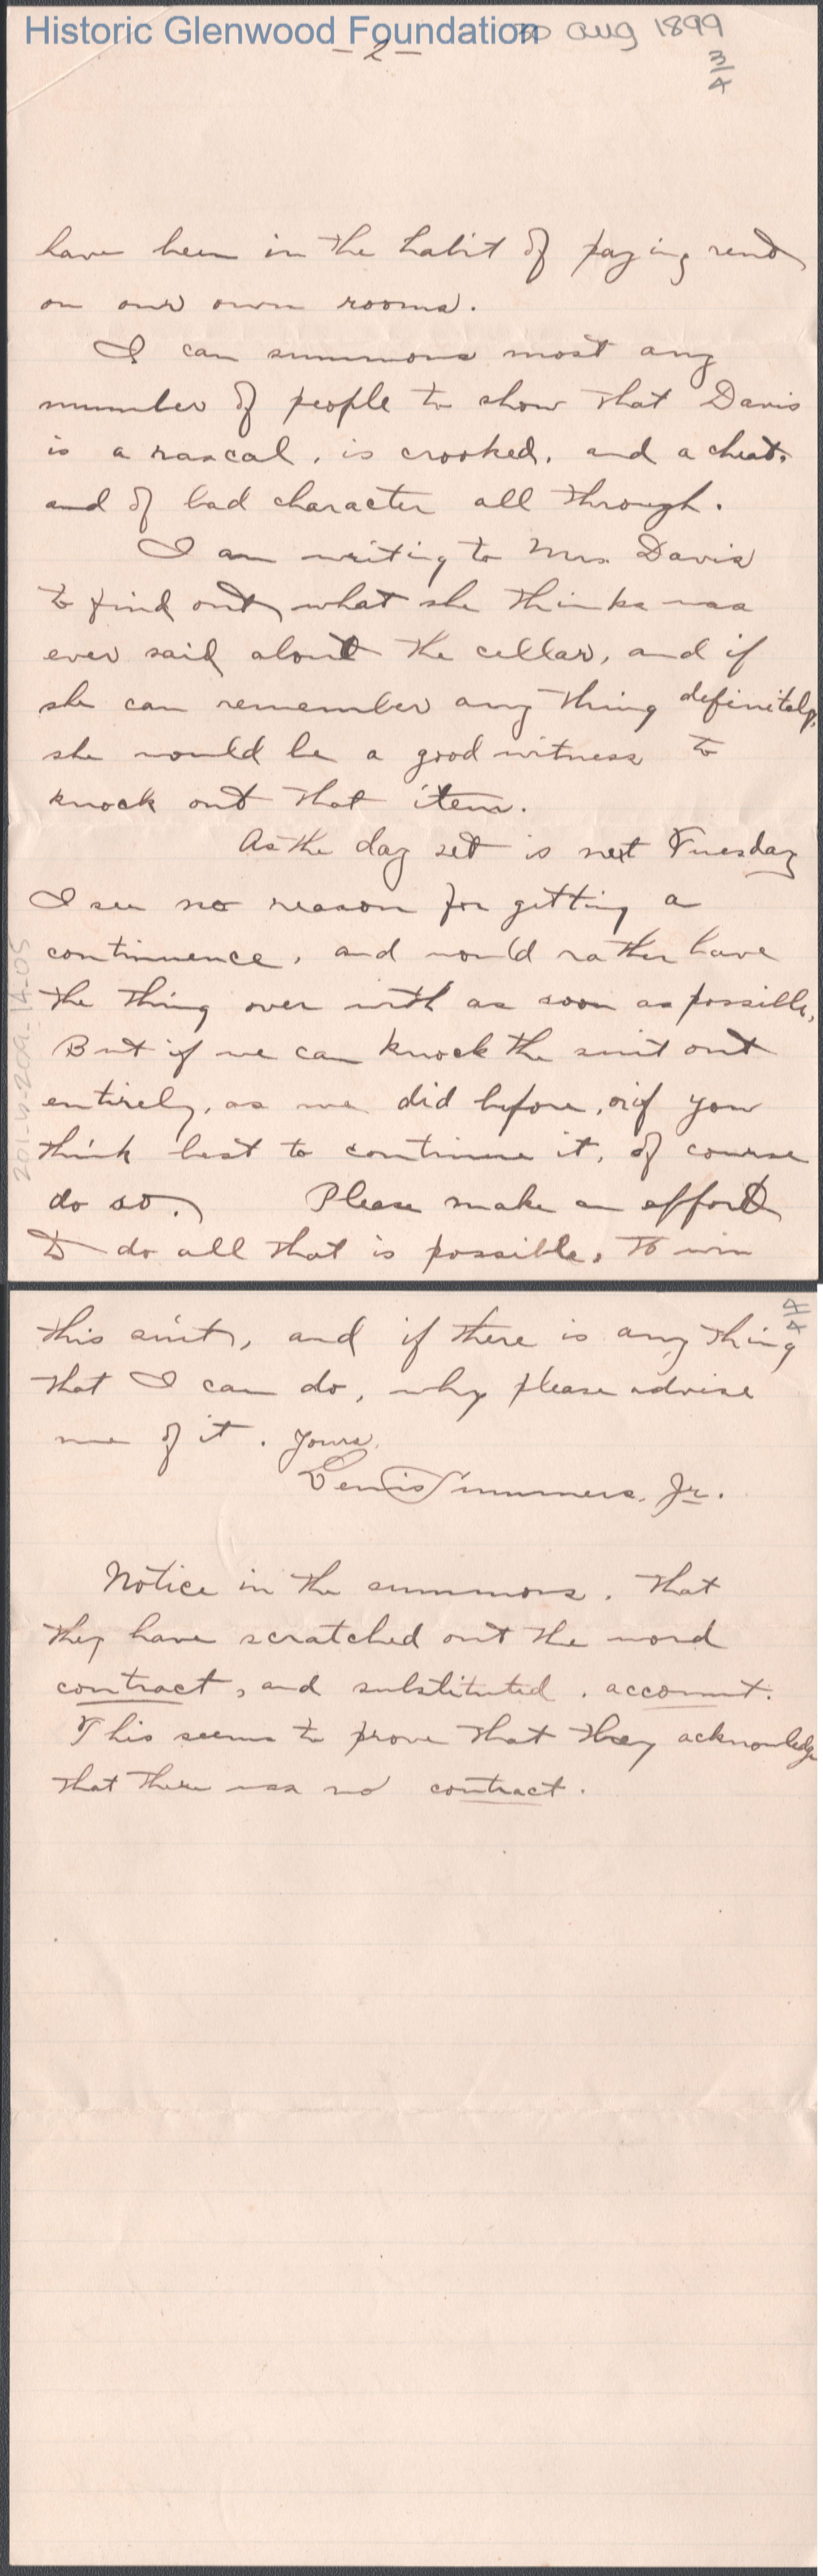 Historic Glenwood Foundation
30 Aug 1899
- 2 -
3/4
have been in the habit of paying rent
on our own rooms.
I can summons most any
number of people to show that Davis
is a rascal, is crooked, and a cheat,
and of bad character all through.
I am writing to Mrs. Davis
to find out what she thinks was
ever said about the cellar, and if
she can remember any thing definitely,
she would be a good witness to
knock out that item.
As the day set is next Tuesday
I see no reason for getting a
continuence, and would rather have
the thing over with as soon as possible,
But if we can knock the suit out
entirely, as we did before, or if you
think best to continue it, of course
do so. Please make an effort
to do all that is possible, to win
201-4-209-14-05
4/4
this suit, and if there is any thing
that I can do, why please advise
me of it. Yours,
Lewis Summers, Jr.
Notice in the summons, that
they have scratched out the word
contract, and substituted, account.
This seems to prove that they acknowledge
that there was no contract.